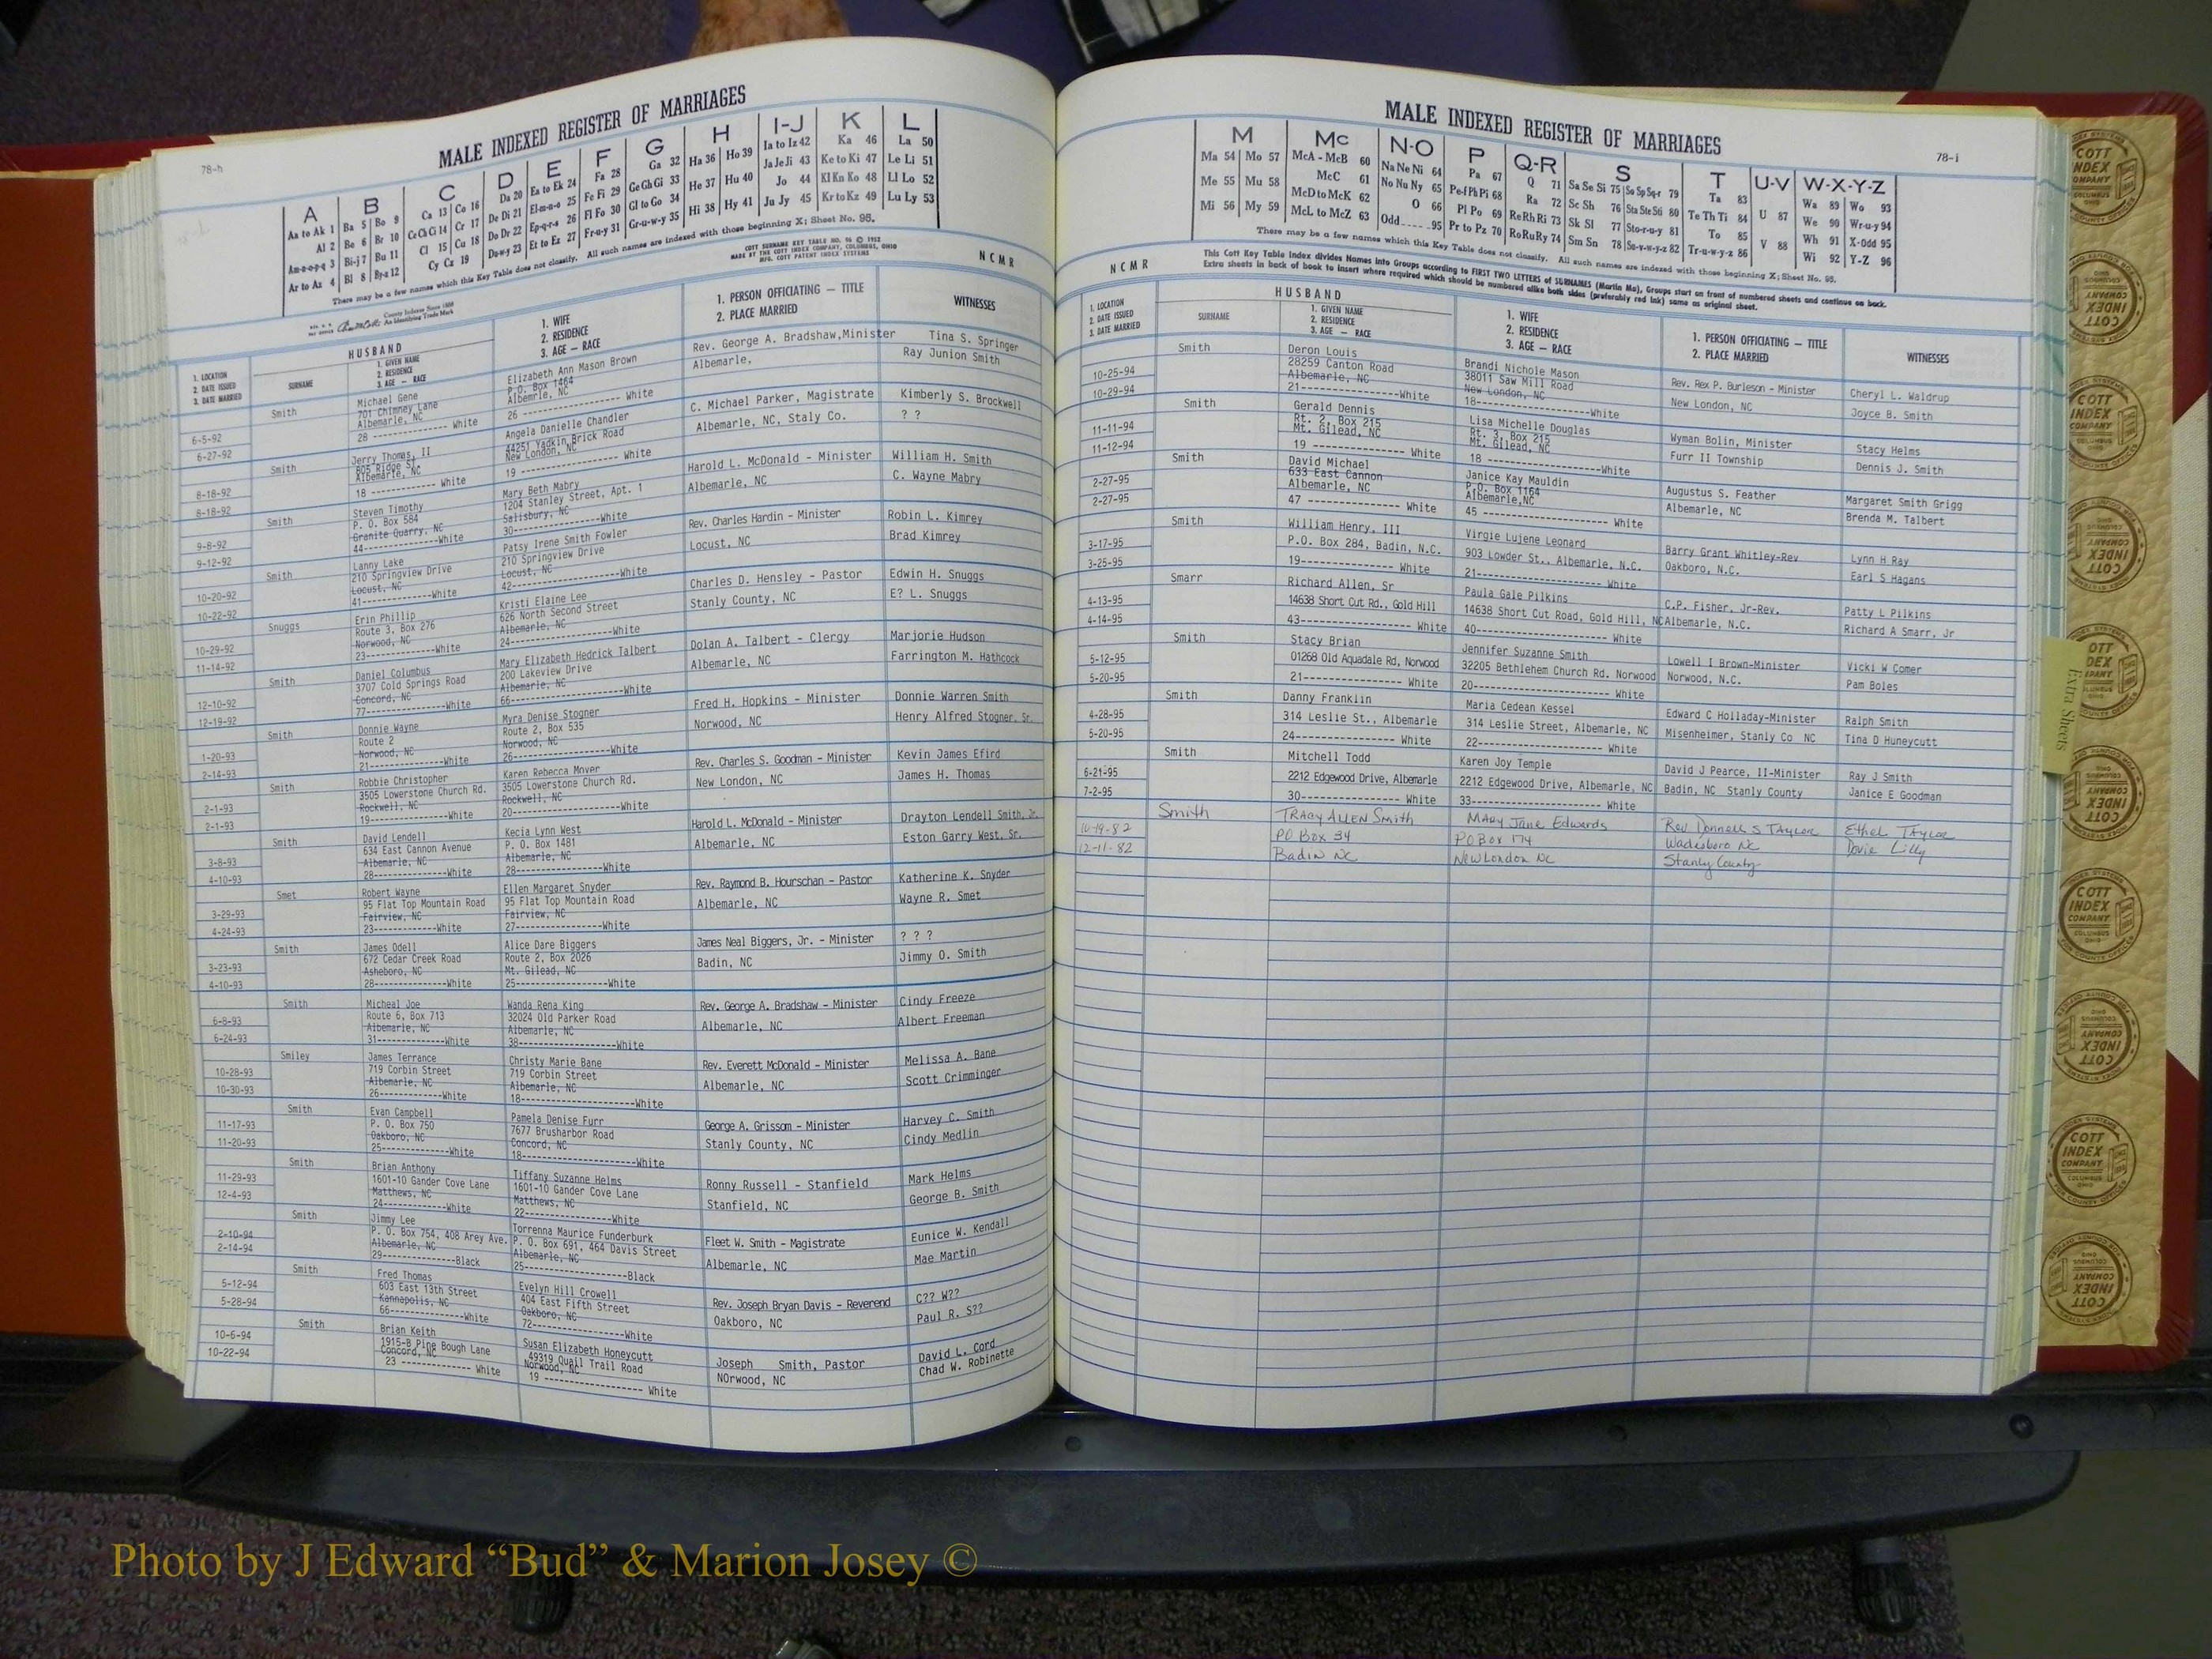 78-h
MALE INDEXED REGISTER OF MARRIAGES
A B C D E F G H I-J K L
Aa to Ak 1 Ba 5 Bo 9 Ca 13 Co 16 Da 20 Ea to Ek 24 Fa 28 Ga 32 Ha 36 Ho 39 Ia to Iz 42 Ka 46 La 50
Al 2 Be 6 Br 10 Ce Ch Ci 14 Cr 17 De Di 21 El-m-n-o 25 Fe Fi 29 Ge Gh Gi 33 He 37 Hu 40 Ja Je Ji 43 Ke to Ki 47 Le Li 51
Am-n-o-p-q 3 Bi-j 7 Bu 11 Cl 15 Cu 18 Do Dr 22 Ep-q-r-s 26 Fl Fo 30 Gl to Go 34 Hi 38 Hy 41 Jo 44 Kl Kn Ko 48 Ll Lo 52
Ar to Az 4 Bl 8 By-z 12 Cy Cz 19 Du-w-y 23 Et to Ez 27 Fr-u-y 31 Gr-u-w-y 35 Ju Jy 45 Kr to Kz 49 Lu Ly 53
There may be a few names which this Key Table does not classify. All such names are indexed with those beginning X; Sheet No. 95.
County Indexes Since 1888
An Identifying Trade Mark
COTT SURNAME KEY TABLE NO. 96 © 1952
MADE BY THE COTT INDEX COMPANY, COLUMBUS, OHIO
MFG. COTT PATENT INDEX SYSTEMS
NCMR
1. LOCATION
2. DATE ISSUED
3. DATE MARRIED
HUSBAND
SURNAME
1. GIVEN NAME
2. RESIDENCE
3. AGE — RACE
1. WIFE
2. RESIDENCE
3. AGE — RACE
1. PERSON OFFICIATING — TITLE
2. PLACE MARRIED
WITNESSES
Smith Michael Gene Elizabeth Ann Mason Brown Rev. George A. Bradshaw,Minister Tina S. Springer
701 Chimney Lane P.O. Box 1464 Albemarle, Ray Junion Smith
6-5-92 Albemarle, NC Albemrle, NC
6-27-92 28 ---------- White 26 ---------- White
Smith Jerry Thomas, II Angela Danielle Chandler C. Michael Parker, Magistrate Kimberly S. Brockwell
805 Ridge St 44251 Yadkin Brick Road Albemarle, NC, Staly Co. ? ?
8-18-92 Albemarle, NC New London, NC
8-18-92 18 ---------- White 19 ---------- White
Smith Steven Timothy Mary Beth Mabry Harold L. McDonald - Minister William H. Smith
P. O. Box 584 1204 Stanley Street, Apt. 1 Albemarle, NC C. Wayne Mabry
9-8-92 Granite Quarry, NC Salisbury, NC
9-12-92 44----------White 30----------White
Smith Lanny Lake Patsy Irene Smith Fowler Rev. Charles Hardin - Minister Robin L. Kimrey
210 Springview Drive 210 Springview Drive Locust, NC Brad Kimrey
10-20-92 Locust, NC Locust, NC
10-22-92 41----------White 42----------White
Snuggs Erin Phillip Kristi Elaine Lee Charles D. Hensley - Pastor Edwin H. Snuggs
Route 3, Box 276 626 North Second Street Stanly County, NC E? L. Snuggs
10-29-92 Norwood, NC Albemarle, NC
11-14-92 23----------White 24----------White
Smith Daniel Columbus Mary Elizabeth Hedrick Talbert Dolan A. Talbert - Clergy Marjorie Hudson
3707 Cold Springs Road 200 Lakeview Drive Albemarle, NC Farrington M. Hathcock
12-10-92 Concord, NC Albemarle, NC
12-19-92 77----------White 66----------White
Smith Donnie Wayne Myra Denise Stogner Fred H. Hopkins - Minister Donnie Warren Smith
Route 2 Route 2, Box 535 Norwood, NC Henry Alfred Stogner, Sr.
1-20-93 Norwood, NC Norwood, NC
2-14-93 21----------White 26----------White
Smith Robbie Christopher Karen Rebecca Moyer Rev. Charles S. Goodman - Minister Kevin James Efird
3505 Lowerstone Church Rd. 3505 Lowerstone Church Rd. New London, NC James H. Thomas
2-1-93 Rockwell, NC Rockwell, NC
2-1-93 19----------White 20----------White
Smith David Lendell Kecia Lynn West Harold L. McDonald - Minister Drayton Lendell Smith, Jr.
634 East Cannon Avenue P. O. Box 1481 Albemarle, NC Eston Garry West, Sr.
3-8-93 Albemarle, NC Albemarle, NC
4-10-93 28----------White 28----------White
Smet Robert Wayne Ellen Margaret Snyder Rev. Raymond B. Hourschan - Pastor Katherine K. Snyder
95 Flat Top Mountain Road 95 Flat Top Mountain Road Albemarle, NC Wayne R. Smet
3-29-93 Fairview, NC Fairview, NC
4-24-93 23----------White 27----------White
Smith James Odell Alice Dare Biggers James Neal Biggers, Jr. - Minister ? ? ?
672 Cedar Creek Road Route 2, Box 2026 Badin, NC Jimmy O. Smith
3-23-93 Asheboro, NC Mt. Gilead, NC
4-10-93 28----------White 25----------White
Smith Micheal Joe Wanda Rena King Rev. George A. Bradshaw - Minister Cindy Freeze
Route 6, Box 713 32024 Old Parker Road Albemarle, NC Albert Freeman
6-8-93 Albemarle, NC Albemarle, NC
6-24-93 31----------White 38----------White
Smiley James Terrance Christy Marie Bane Rev. Everett McDonald - Minister Melissa A. Bane
719 Corbin Street 719 Corbin Street Albemarle, NC Scott Crimminger
10-28-93 Albemarle, NC Albemarle, NC
10-30-93 26----------White 18----------White
Smith Evan Campbell Pamela Denise Furr George A. Grissom - Minister Harvey C. Smith
P. O. Box 750 7677 Brusharbor Road Stanly County, NC Cindy Medlin
11-17-93 Oakboro, NC Concord, NC
11-20-93 25----------White 18----------White
Smith Brian Anthony Tiffany Suzanne Helms Ronny Russell - Stanfield Mark Helms
1601-10 Gander Cove Lane 1601-10 Gander Cove Lane Stanfield, NC George B. Smith
11-29-93 Matthews, NC Matthews, NC
12-4-93 24----------White 22----------White
Smith Jimmy Lee Torrenna Maurice Funderburk Fleet W. Smith - Magistrate Eunice W. Kendall
P. O. Box 754, 408 Arey Ave. P. O. Box 691, 464 Davis Street Albemarle, NC Mae Martin
2-10-94 Albemarle, NC Albemarle, NC
2-14-94 29----------Black 25----------Black
Smith Fred Thomas Evelyn Hill Crowell Rev. Joseph Bryan Davis - Reverend C?? W??
603 East 13th Street 404 East Fifth Street Oakboro, NC Paul R. S??
5-12-94 Kannapolis, NC Oakboro, NC
5-28-94 66----------White 72----------White
Smith Brian Keith Susan Elizabeth Honeycutt Joseph Smith, Pastor David L. Cord
1915-B Pine Bough Lane 49319 Quail Trail Road NOrwood, NC Chad W. Robinette
10-6-94 Concord, NC Norwood, NC
10-22-94 23 ---------- White 19 ---------- White
MALE INDEXED REGISTER OF MARRIAGES
78-i
M Mc N-O P Q-R S T U-V W-X-Y-Z
Ma 54 Mo 57 McA - McB 60 Na Ne Ni 64 Pa 67 Q 71 Sa Se Si 75 So Sp Sq-r 79 Ta 83 U 87 Wa 89 Wo 93
Me 55 Mu 58 McC 61 No Nu Ny 65 Pe-f Ph Pi 68 Ra 72 Sc Sh 76 Sta Ste Sti 80 Te Th Ti 84 V 88 We 90 Wr-u-y 94
Mi 56 My 59 McD to McK 62 O 66 Pl Po 69 Re Rh Ri 73 Sk Sl 77 Sto-r-u-y 81 To 85 Wh 91 X-Odd 95
McL to McZ 63 Odd 95 Pr to Pz 70 Ro Ru Ry 74 Sm Sn 78 Su-v-w-y-z 82 Tr-u-w-y-z 86 Wi 92 Y-Z 96
There may be a few names which this Key Table does not classify. All such names are indexed with those beginning X; Sheet No. 95.
This Cott Key Table Index divides Names into Groups according to FIRST TWO LETTERS of SURNAMES (Martin Ma), Groups start on front of numbered sheets and continue on back.
Extra sheets in back of book to insert where required which should be numbered alike both sides (preferably red ink) same as original sheet.
NCMR
1. LOCATION
2. DATE ISSUED
3. DATE MARRIED
HUSBAND
SURNAME
1. GIVEN NAME
2. RESIDENCE
3. AGE — RACE
1. WIFE
2. RESIDENCE
3. AGE — RACE
1. PERSON OFFICIATING — TITLE
2. PLACE MARRIED
WITNESSES
Smith Deron Louis Brandi Nichole Mason Rev. Rex P. Burleson - Minister Cheryl L. Waldrup
10-25-94 28259 Canton Road 38011 Saw Mill Road New London, NC Joyce B. Smith
Albemarle, NC New London, NC
10-29-94 21----------White 18----------White
Smith Gerald Dennis Lisa Michelle Douglas Wyman Bolin, Minister Stacy Helms
11-11-94 Rt. 2, Box 215 Rt. 3, Box 215 Furr II Township Dennis J. Smith
Mt. Gilead, NC Mt. Gilead, NC
11-12-94 19 ---------- White 18 ----------White
Smith David Michael Janice Kay Mauldin Augustus S. Feather Margaret Smith Grigg
2-27-95 633 East Cannon P.O. Box 1164 Albemarle, NC Brenda M. Talbert
Albemarle, NC Albemarle,NC
2-27-95 47 ---------- White 45 ---------- White
Smith William Henry, III Virgie Lujene Leonard Barry Grant Whitley-Rev Lynn H Ray
3-17-95 P.O. Box 284, Badin, N.C. 903 Lowder St., Albemarle, N.C. Oakboro, N.C. Earl S Hagans
3-25-95 19---------- White 21---------- White
Smarr Richard Allen, Sr Paula Gale Pilkins C.P. Fisher, Jr-Rev. Patty L Pilkins
4-13-95 14638 Short Cut Rd., Gold Hill 14638 Short Cut Road, Gold Hill, NC Albemarle, N.C. Richard A Smarr, Jr
4-14-95 43---------- White 40---------- White
Smith Stacy Brian Jennifer Suzanne Smith Lowell I Brown-Minister Vicki W Comer
5-12-95 01268 Old Aquadale Rd, Norwood 32205 Bethlehem Church Rd. Norwood Norwood, N.C. Pam Boles
5-20-95 21---------- White 20---------- White
Smith Danny Franklin Maria Cedean Kessel Edward C Holladay-Minister Ralph Smith
4-28-95 314 Leslie St., Albemarle 314 Leslie Street, Albemarle, NC Misenheimer, Stanly Co NC Tina D Huneycutt
5-20-95 24---------- White 22---------- White
Smith Mitchell Todd Karen Joy Temple David J Pearce, II-Minister Ray J Smith
6-21-95 2212 Edgewood Drive, Albemarle 2212 Edgewood Drive, Albemarle, NC Badin, NC Stanly County Janice E Goodman
7-2-95 30---------- White 33---------- White
Smith TRACY ALLEN Smith MARY Jane Edwards Rev Donnell S TAYLOR Ethel TAYLOR
10-19-82 PO Box 34 PO Box 174 Wadesboro NC Dovie Lilly
12-11-82 Badin NC New London NC Stanly County
Extra Sheets
COTT INDEX COMPANY COLUMBUS OHIO
Photo by J Edward “Bud” & Marion Josey ©